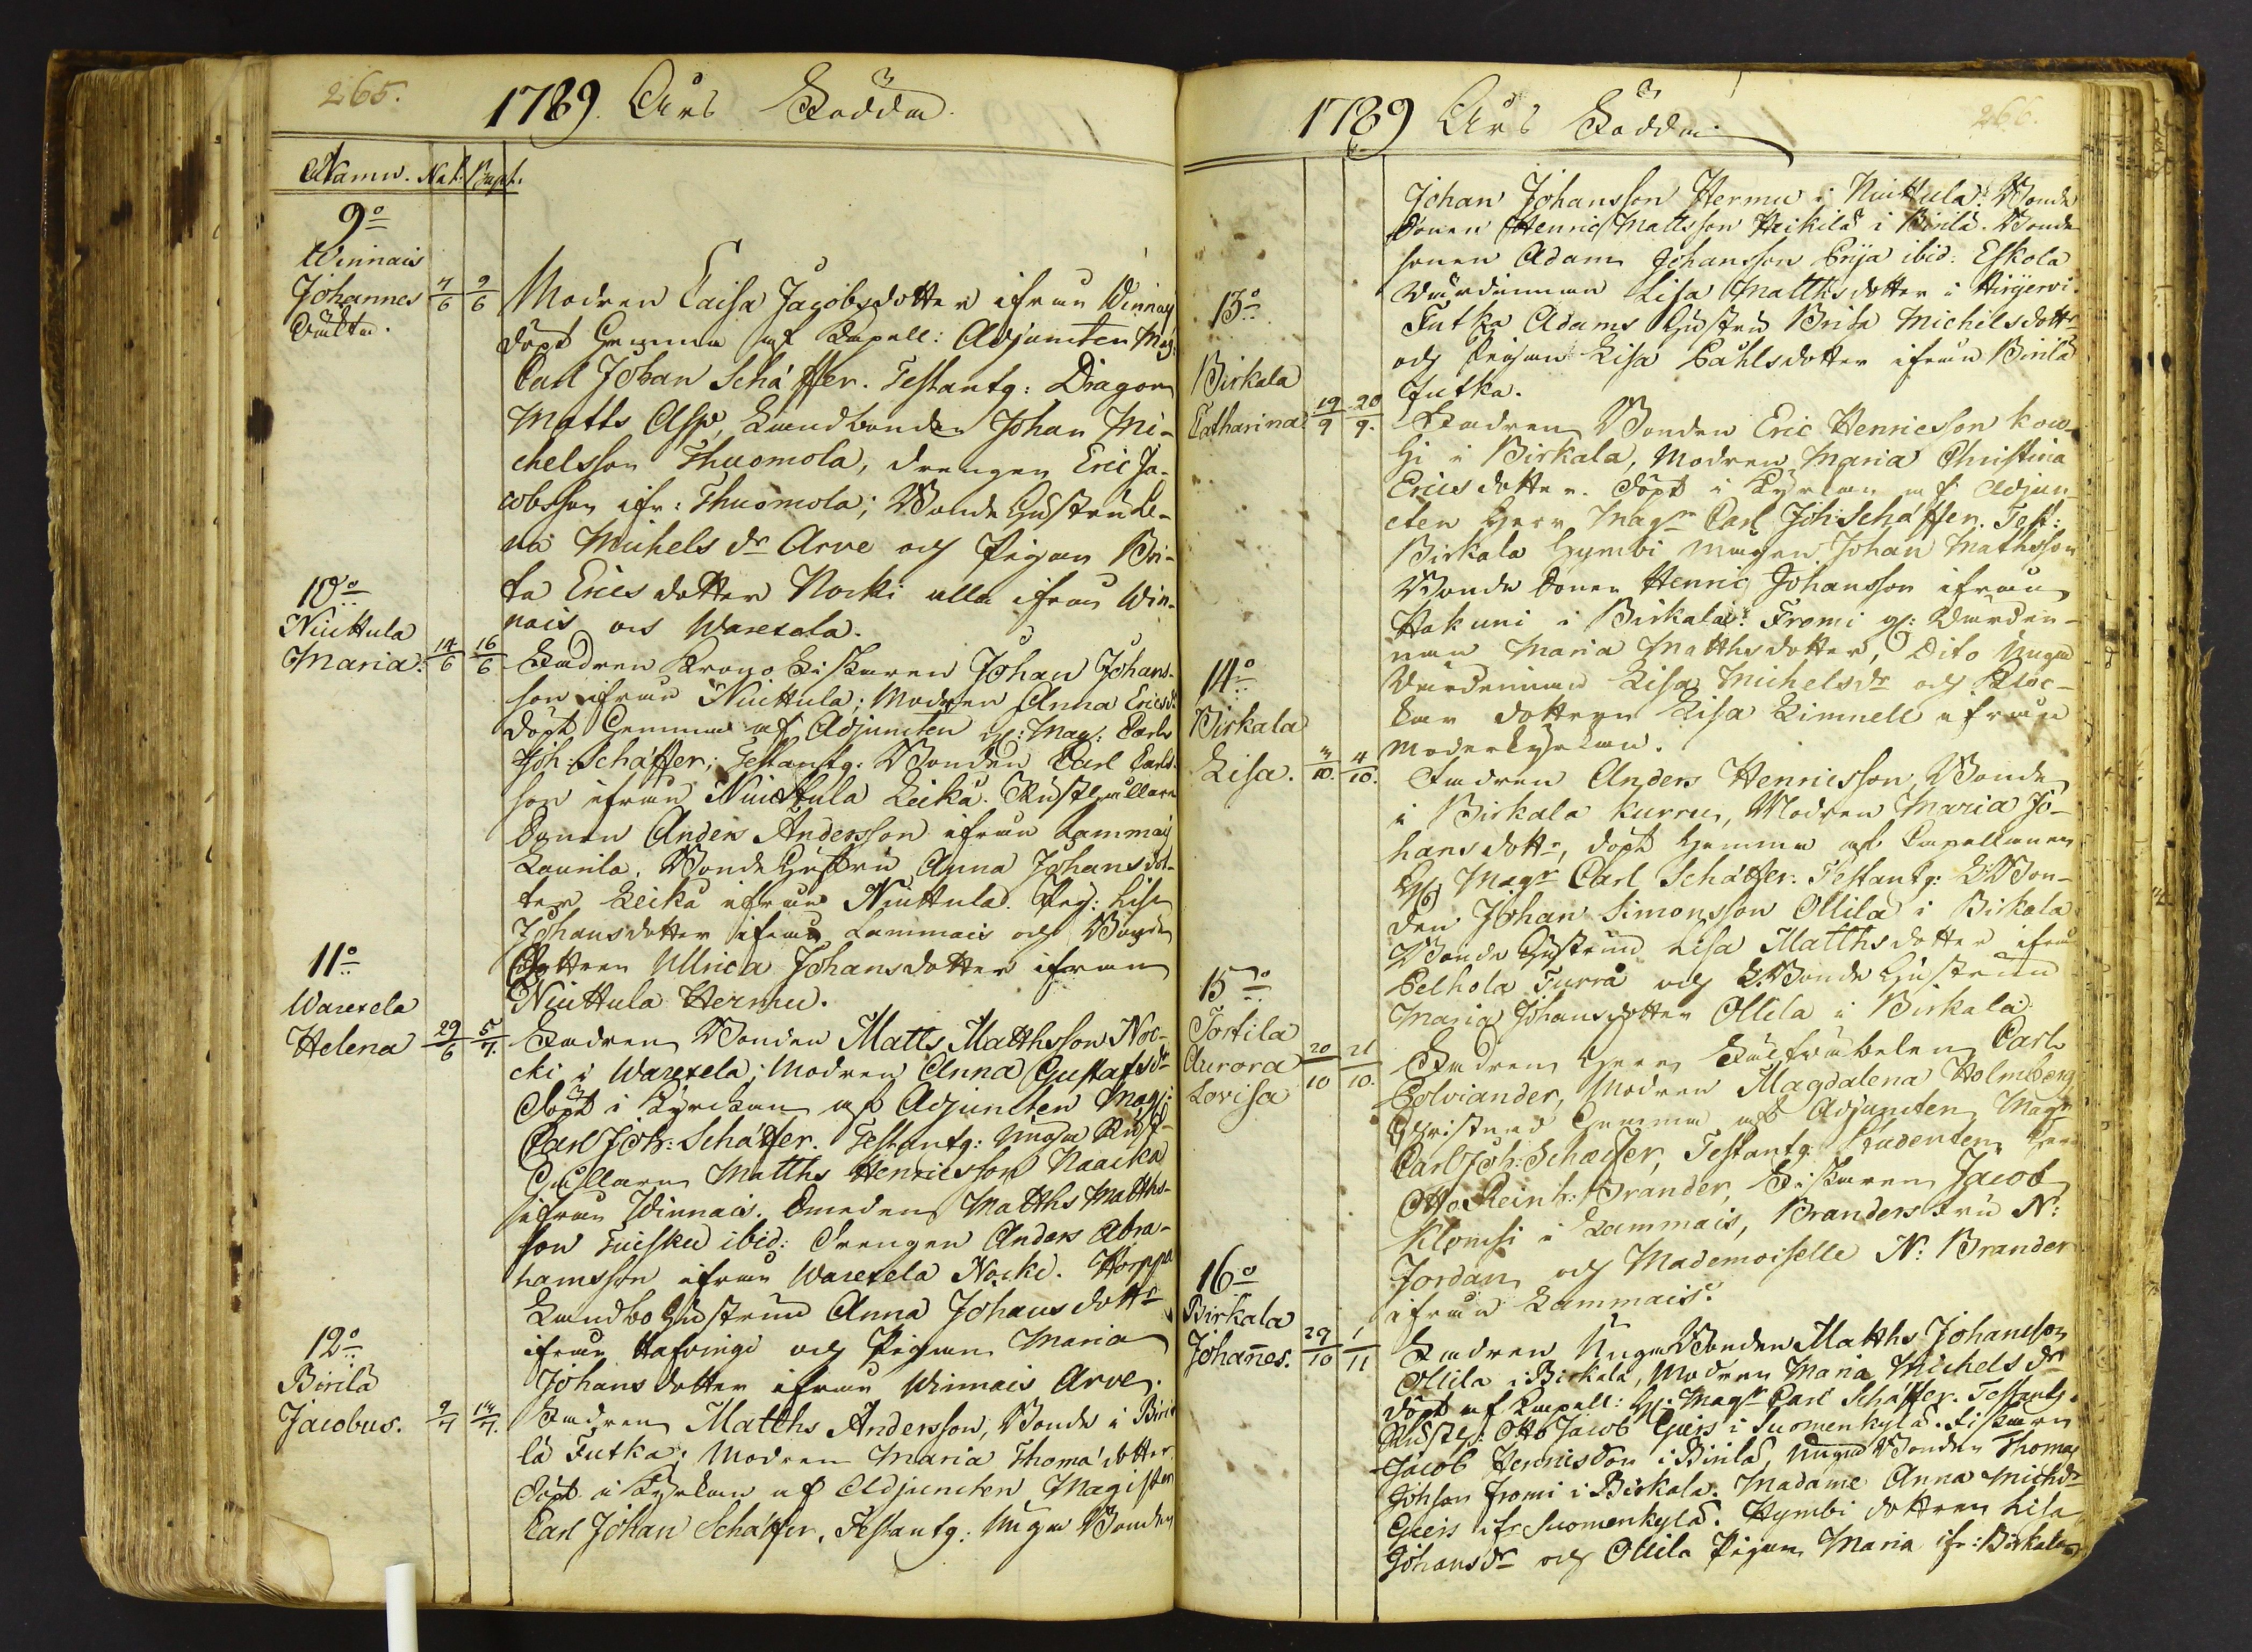 265.
1789. Års Födde.
Namn. Nat. Bapt.
9o
Winnais
Johannes 7/6 9/6
Oäkta.
Modren Caisa Jacobsdotter ifrån Winnais
döpt hemma af Capell: Adjuncten Mag:
Carl Johan Schäffer. Testantg: Dragon
Matts Asp, Landbonden Johan Mi-
chelsson Thuomola, drengen Eric Ja-
cobsson ifr: Thuomola; Bonde Hustru Le-
na Michels dr Arve och Pigan Bri-
ta Erics dotter Nocki alla ifrån Win-
nais och Warexela.
10o
Niuttula
Maria: 14/6 16/6
Fadren Krono Fiskaren Johan Johans-
son ifrån Niuttula; Modren Anna Ericsdr
döpt hemma af Adjuncten H: Mag: Carl
Joh: Schäffer; Testantg: Bonden Carl Carls-
son ifrån Niuttula Leikä. Rusthållare
Sonen Anders Andersson ifrån Lammais
Laurila. Bonde Hustru Anna Johansdot-
ter Leikä ifrån Niuttula. Pig: Lisa
Johansdotter ifrån Lammais och Bonde
Dottren Ullrica Johansdotter ifrån
Niuttula Hermu.
11o
Warexela
Helena 29/6 5/7.
Fadren Bonden Matts Matthsson Noc-
cki i Warexela; Modren Anna Gustafsdr
döpt i Kyrckan af Adjuncten Mag:
Carl Joh: Schäffer. Testantg: Unga Rust-
hållaren Matths Henricsson Naacka
ifrån Winnais. Smeden Matths Matths-
son Tuisku ibid: Drengen Anders Abra-
hamsson ifrån Warexela Nocki. Horppa
Landbo Hustrun Anna Johansdottr
ifrån Hafvinge och Pigan Maria
Johansdotter ifrån Winnais Arve.
12o
Birilä
Jacobus. 9/7 14/7.
Fadren Matths Andersson, Bonde i Biri-
lä Jutka; Modren Maria Thoma dotter
döpt i Kyrkan af Adjuncten Magister
Carl Johan Schäffer. Testantg: Unga Bonden
1789 Års Födde.
266.
Johan Johansson Hermu i Niuttula. Bonde
Sonen Henric Mattsson Heikilä i Birilä. Bonde
sonen Adam Johansson Erija ibid: Eskola
Värdinnan Lisa Matthsdotter i Hirijervi.
Jutka Adams Hustru Brita Michelsdottr
och Pigan Lisa Påhlsdotter ifrån Birilä
Jutka.
13o
Birkala
Catharina 19/9 20/9.
Fadren Bonden Eric Henricsson Kow-
hi i Birkala, Modren Maria Christina
Ericsdotter. döpt i Kyrkan af Adjun-
cten Herr Magr Carl Joh: Schäffer. Test:
Birkala Hymbi mågen Johan Mathsson
Bonde Sonen Henric Johansson ifrån
Hakuni i Birkala: Fromi g: Värdin-
nan Maria Matthsdotter, Dito Unga
Värdinnan Lisa Michelsdr och Kloc-
kar dottren Lisa Limnell ifrån
Moderkyrkan.
14o
Birkala
Lisa. 3/10. 4/10.
Fadren Anders Henricsson, Bonde
i Birkala Kurru, Modren Maria Jo-
hans dottr, döpt hemma af Capellanen
Hr Magr Carl Schäffer. Testantg: L:Bon-
den Johan Simonsson Ollila i Birkala
Bonde Hustrun Lisa Matthsdotter ifrån
Pelhola Turra och L:Bonde Hustrun
Maria Johansdotter Ollila i Birkala.
15o
Tortila
Aurora 20/10 21/10.
Lovisa
Fadren Herr Carl
Polviander, Modren Magdalena Holmberg
Christnad hemma af Adjuncten Magr
Carl Joh: Schæffer, Testantg. Studenten Herr
Otto Reinh: Brander, Fiskaren Jacob
Klomsi i Lammais, Branders Fru N:
Jordan och Mademoiselle N: Brander
ifrån Lammais.
16o
Birkala
Johañes. 29/10 1/11
Fadren Unga Bonden Matths Johansson
Ollila i Birkala, Modren Maria Michelsdr
döpt af Capell: H: Magr Carl Schäffer. Testantg.
Rusth: Otto Jacob Geers i Suomenkylä. Fiskaren
Jacob Henricsson i Birilä, Unga Bonden Thomas
Johsson Fromi i Birkala. Madame Anna Michdr
Geers ifr Suomenkylä. Hymbi dottren Lisa
Johansdr och Ollila Pigan Maria ifr: Birkala